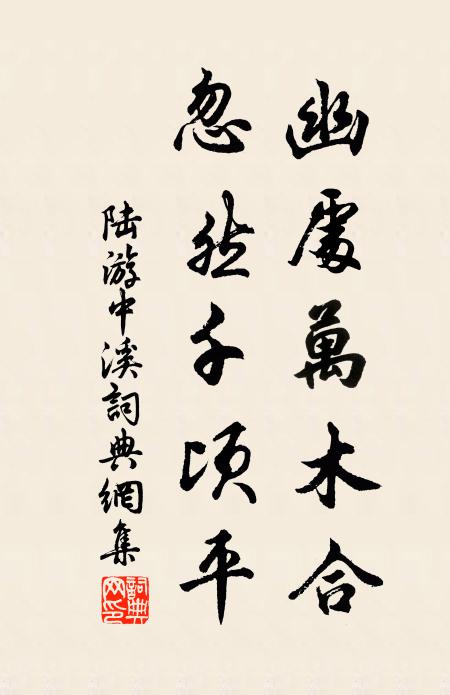 幽處萬木合
忽然千頃平
陆游中溪詞典網集
詞典網印